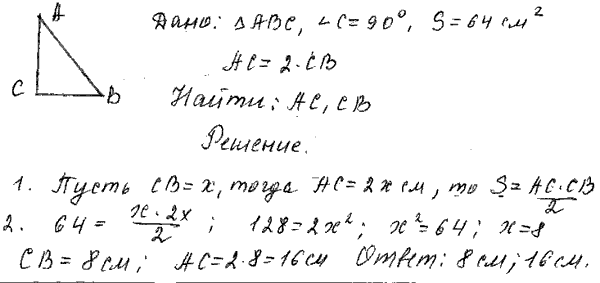 A
C
B
Дано: ΔABC, ∠C=90°, S=64 см²
AC=2·CB
Найти: AC, CB
Решение.
1. Пусть CB=x, тогда AC=2x см, то S=AC·CB/2
2. 64=x·2x/2; 128=2x²; x²=64; x=8
CB=8см; AC=2·8=16см Ответ: 8см; 16см.